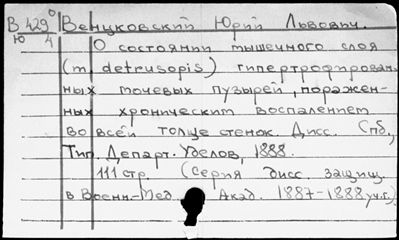 В 429 Венцковский Юрий Львович.
Ю 4 О состоянии мышечного слоя
(m detrusopis) гипертрофирован
ных мочевых пузырей, поражен-
ных хроническим воспалением
во всей толще стенок. Дисс. Спб,
Тип. Департ. Уделов, 1888.
111 стр. (Серия дисс. защищ.
в Военн-Мед. Акад. 1887-1888 уч.г.)